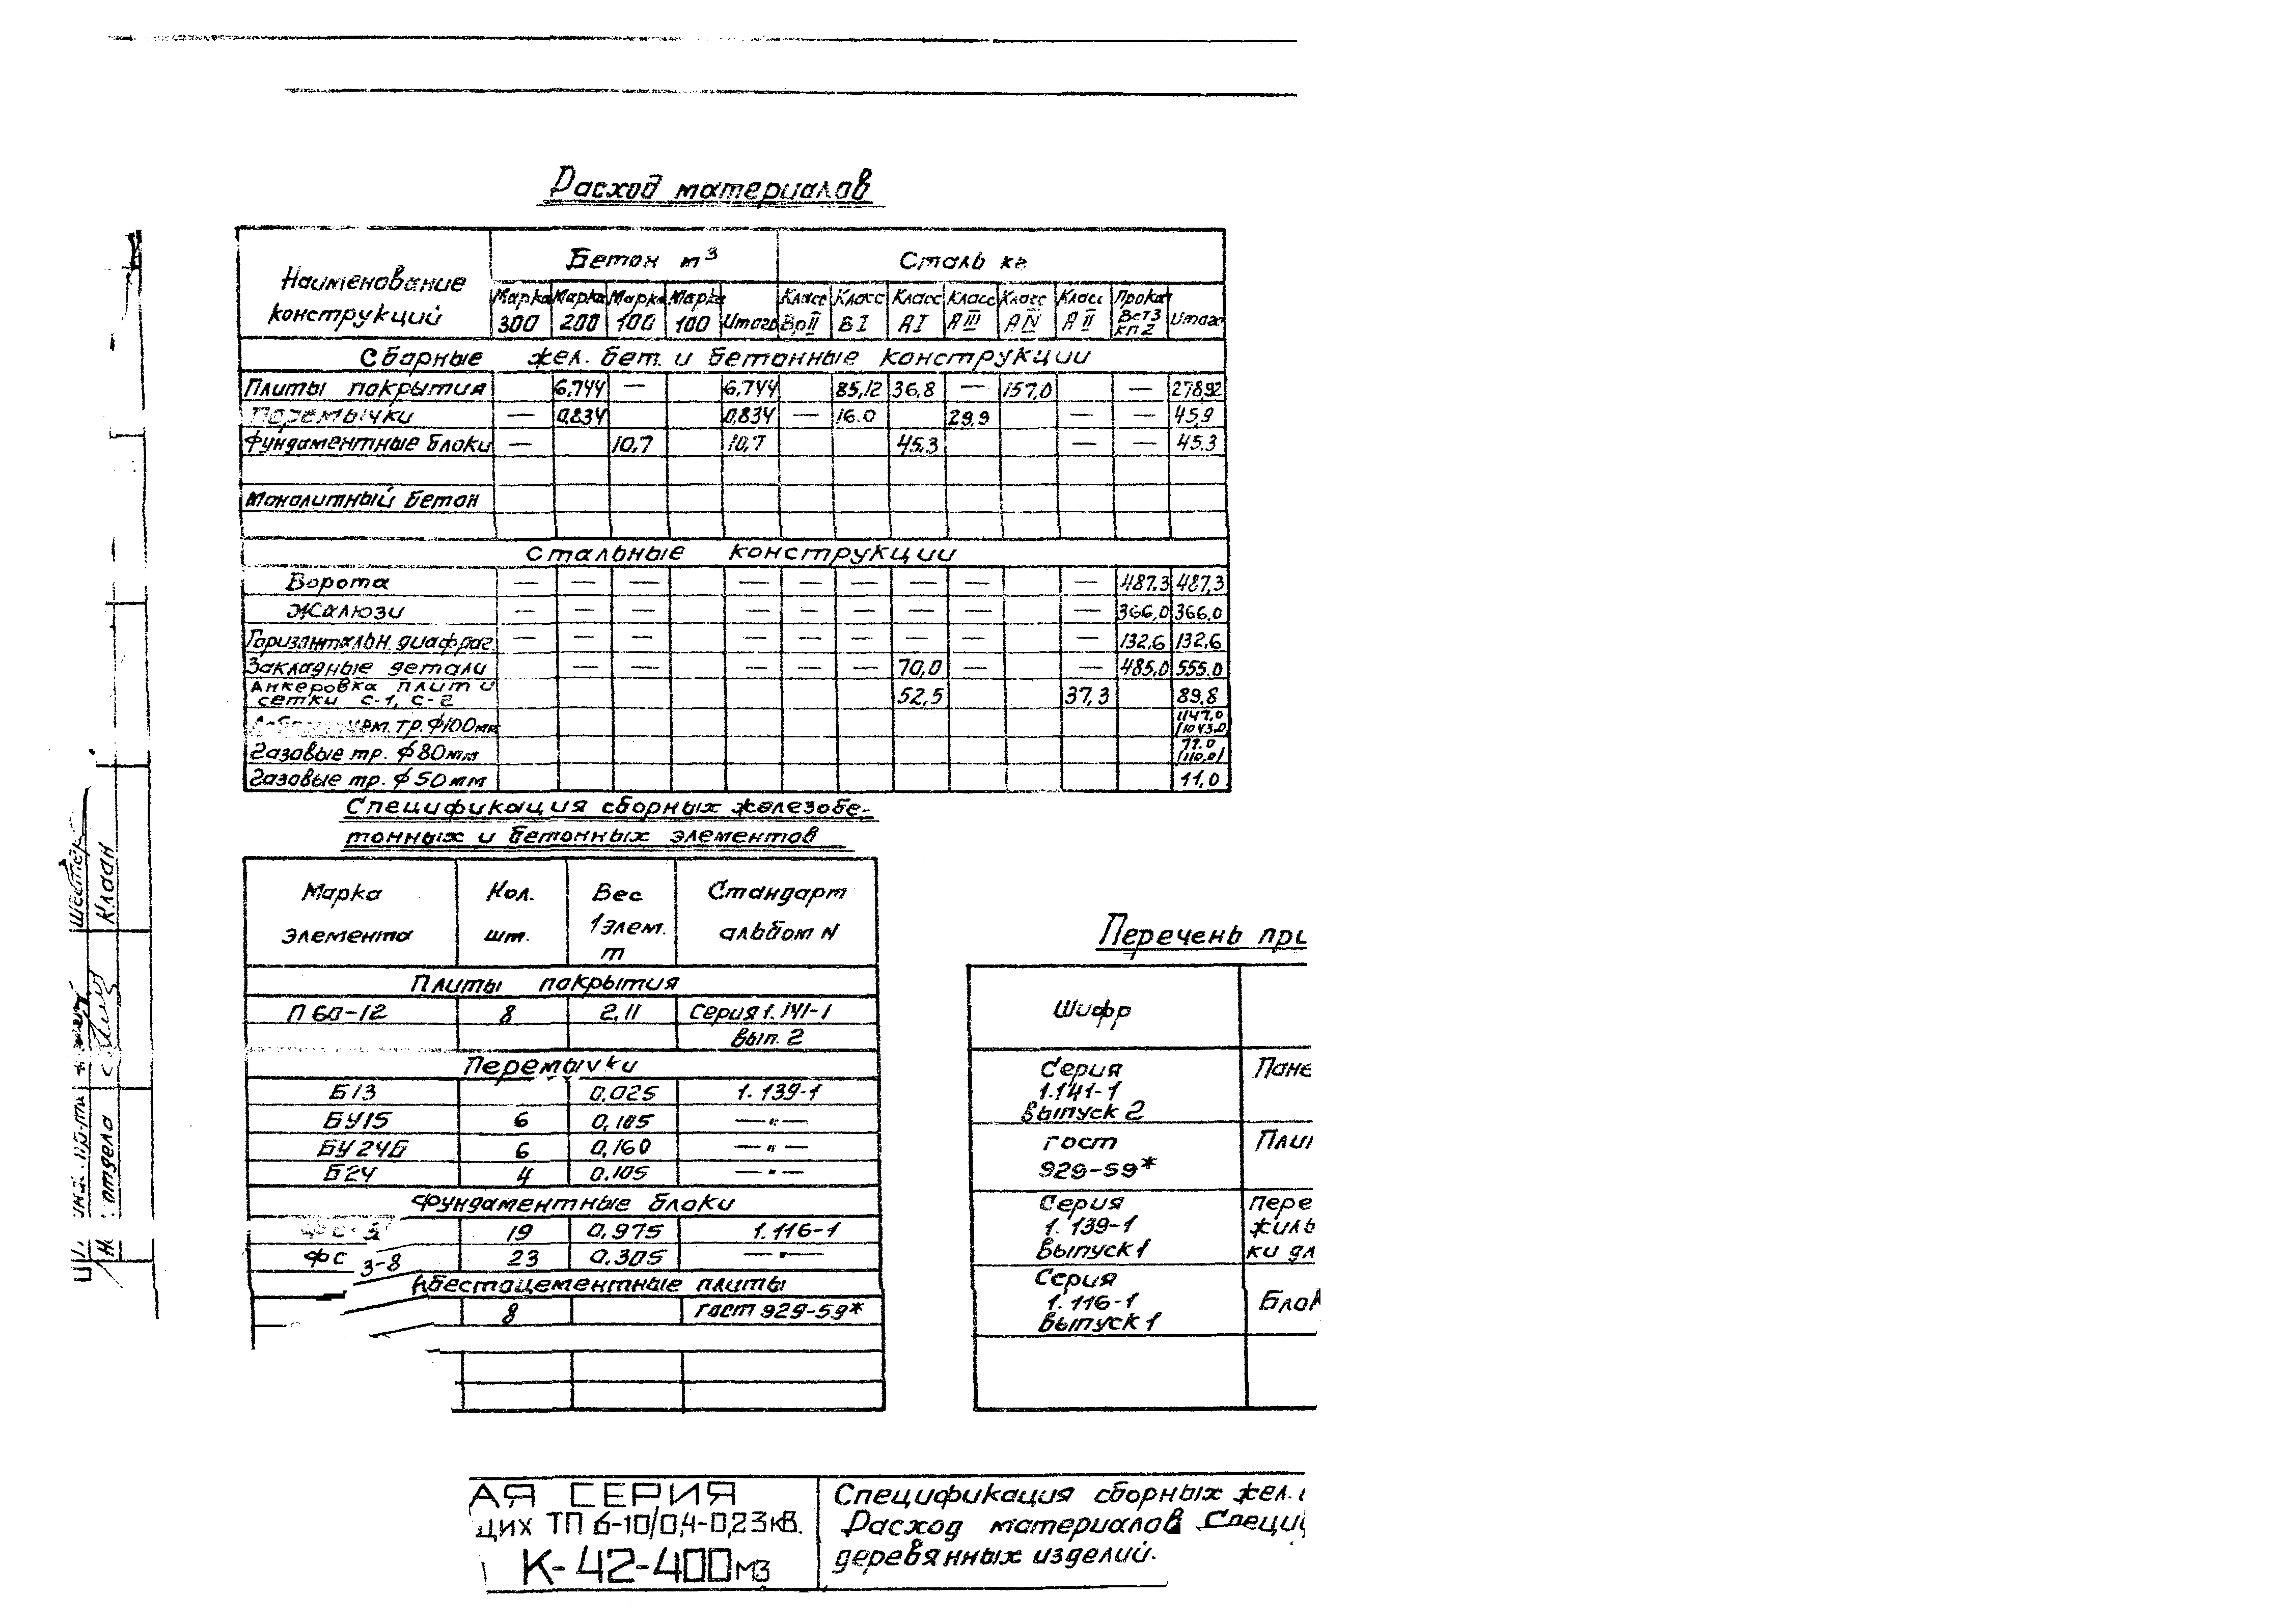 Расход материалов
Наименование конструкций
Бетон м³
Сталь кг
Марка 300
Марка 200
Марка 100
Марка 100
Итого
Класс ВрII
Класс ВI
Класс АI
Класс АIII
Класс АIV
Класс АII
Прокат Вст3 кп2
Итого
Сборные жел. бет. и бетонные конструкции
Плиты покрытия 6,744 — 6,744 85,12 36,8 — 157,0 — 278,92
Перемычки — 0,834 0,834 — 16.0 29,9 — — 45,9
Фундаментные блоки — 10,7 10,7 45,3 — — 45.3
Монолитный бетон
Стальные конструкции
Ворота — — — — — — — — — 487,3 487,3
Жалюзи — — — — — — — — — 366,0 366,0
Горизонтальн. диафраг. — — — — — — — — — 132.6 132.6
Закладные детали — — — — — 70,0 — — 485,0 555.0
Анкеровка плит и
сетки С-1, С-2 52,5 37,3 89,8
тр. Ф100мм 1147.0 /1043.0/
Газовые тр. Ф80мм 77.0 /110,0/
Газовые тр. Ф50мм 11,0
Спецификация сборных железобе-
тонных и бетонных элементов
Марка элемента
Кол. шт.
Вес 1элем. т
Стандарт альбом N
Плиты покрытия
П60-12 8 2,11 Серия 1.141-1
вып. 2
Перемычки
Б13 0,025 1.139-1
БУ15 6 0,105 —"—
БУ24Б 6 0,160 —"—
Б24 4 0.105 —"—
Фундаментные блоки
19 0,975 1.116-1
ФС 3-8 23 0.305 —"—
Асбестоцементные плиты
8 гост 929-59*
Перечень при
Шифр
Серия Пане
1.141-1
выпуск 2
гост Плит
929-59*
Серия пере
1.139-1 жиль
Выпуск 1 ки дл
Серия
1.116-1 Блок
Выпуск 1
Шестер
Клаан
отдела
АЯ СЕРИЯ
ЩИХ ТП 6-10/0,4-0,23кВ.
К-42-400м3
Спецификация сборных жел.
Расход материалов Специф
деревянных изделий.